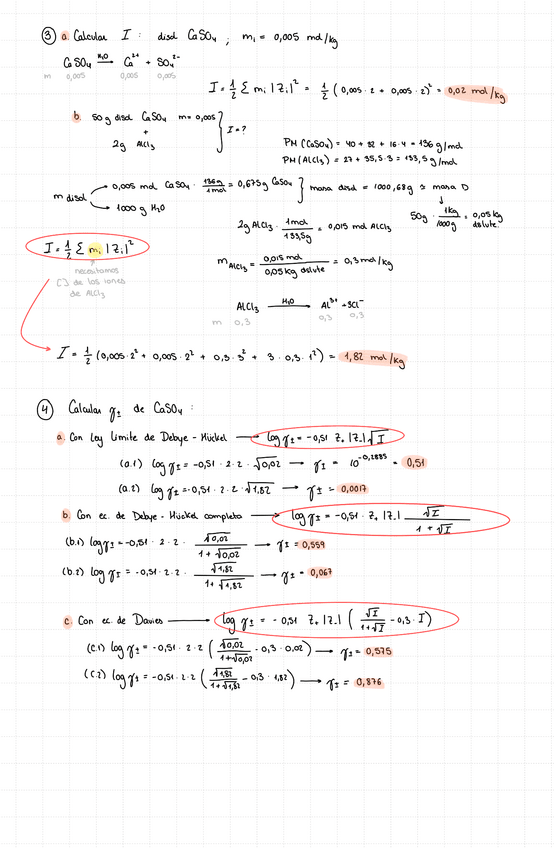 ③ a. Calcular I : disol CaSO₄ ; mᵢ = 0,005 mol/kg
CaSO₄ —H₂O→ Ca²⁺ + SO₄²⁻
m 0,005 0,005 0,005
I = 1/2 Σ mᵢ |Zᵢ|² = 1/2 (0,005 · 2 + 0,005 · 2)² = 0,02 mol/kg
b. 50 g disol CaSO₄ m = 0,005
+
2g AlCl₃
I = ?
PM (CaSO₄) = 40 + 32 + 16·4 = 136 g/mol
PM (AlCl₃) = 27 + 35,5·3 = 133,5 g/mol
m disol
0,005 mol CaSO₄ · 136g/1mol = 0,675g CaSO₄
1000 g H₂O
masa disol = 1000,68g ≈ masa D
50g · 1kg/1000g = 0,05 kg dslute.
2g AlCl₃ · 1mol/133,5g = 0,015 mol AlCl₃
I = 1/2 Σ mᵢ |Zᵢ|²
necesitamos
[] de los iones
de AlCl₃
m AlCl₃ = 0,015 mol/0,05 kg dslute = 0,3 mol/kg
AlCl₃ —H₂O→ Al³⁺ + 3Cl⁻
m 0,3 0,3 0,3
I = 1/2 (0,005·2² + 0,005·2² + 0,3·3² + 3·0,3·1²) = 1,82 mol/kg
④ Calcular γ± de CaSO₄ :
a. Con ley límite de Debye - Hückel → log γ± = -0,51 Z₊ |Z₋| √I
(a.1) log γ± = -0,51 · 2 · 2 · √0,02 → γ± = 10^-0,2885 = 0,51
(a.2) log γ± = -0,51 · 2 · 2 · √1,82 → γ± = 0,0017
b. Con ec. de Debye - Hückel completa → log γ± = -0,51 · Z₊ |Z₋| √I / 1 + √I
(b.1) log γ± = -0,51 · 2 · 2 · √0,02 / 1 + √0,02 → γ± = 0,559
(b.2) log γ± = -0,51 · 2 · 2 · √1,82 / 1 + √1,82 → γ± = 0,067
c. Con ec. de Davies → log γ± = -0,51 Z₊ |Z₋| ( √I / 1+√I - 0,3 · I )
(c.1) log γ± = -0,51 · 2 · 2 ( √0,02 / 1+√0,02 - 0,3 · 0,02 ) → γ± = 0,575
(c.2) log γ± = -0,51 · 2 · 2 ( √1,82 / 1+√1,82 - 0,3 · 1,82 ) → γ± = 0,876